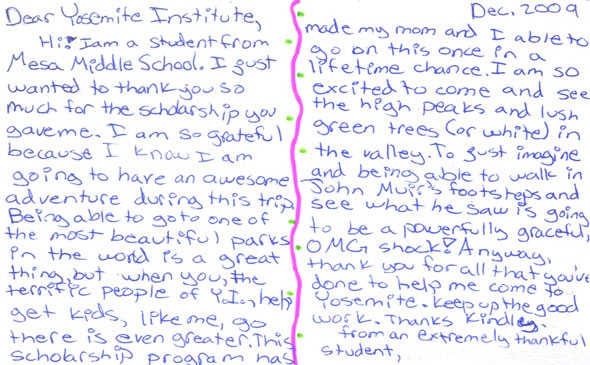 Dear Yosemite Institute,
Hi! I am a student from
Mesa Middle School. I just
wanted to thank you so
much for the scholarship you
gave me. I am so grateful
because I know I am
going to have an awesome
adventure during this trip.
Being able to go to one of
the most beautiful parks
in the world is a great
thing, but when you, the
terrific people of Y.I., help
get kids, like me, go
there is even greater. This
scholarship program has
Dec. 2009
made my mom and I able to
go on this once in a
lifetime chance. I am so
excited to come and see
the high peaks and lush
green trees (or white) in
the valley. To just imagine
and being able to walk in
John Muir's footsteps and
see what he saw is going
to be a powerfully graceful,
OMG shock! Anyway,
thank you for all that you've
done to help me come to
Yosemite. Keep up the good
work. Thanks Kindley.
from an extremely thankful
student,